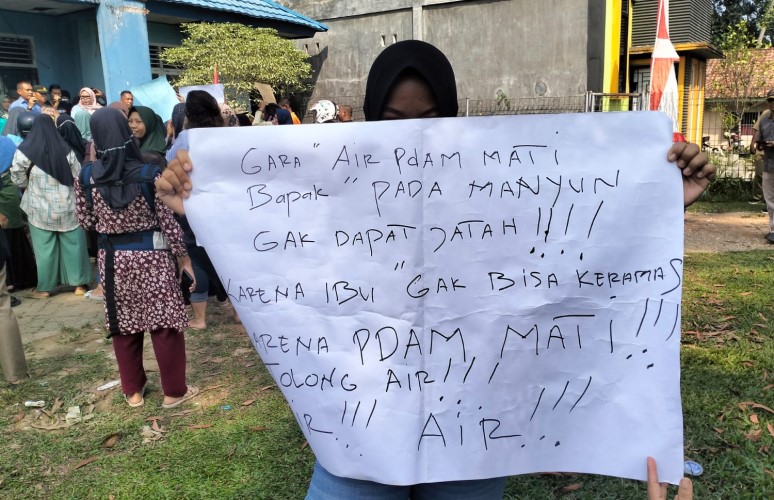 GARA" AIR PDAM MATI
Bapak" PADA MANYUN
GAK DAPAT JATAH !!!!
KARENA IBU" GAK BISA KERAMAS
KARENA PDAM MATI...!!!
TOLONG AIR...!!!
AIR...!!! AIR...!!!